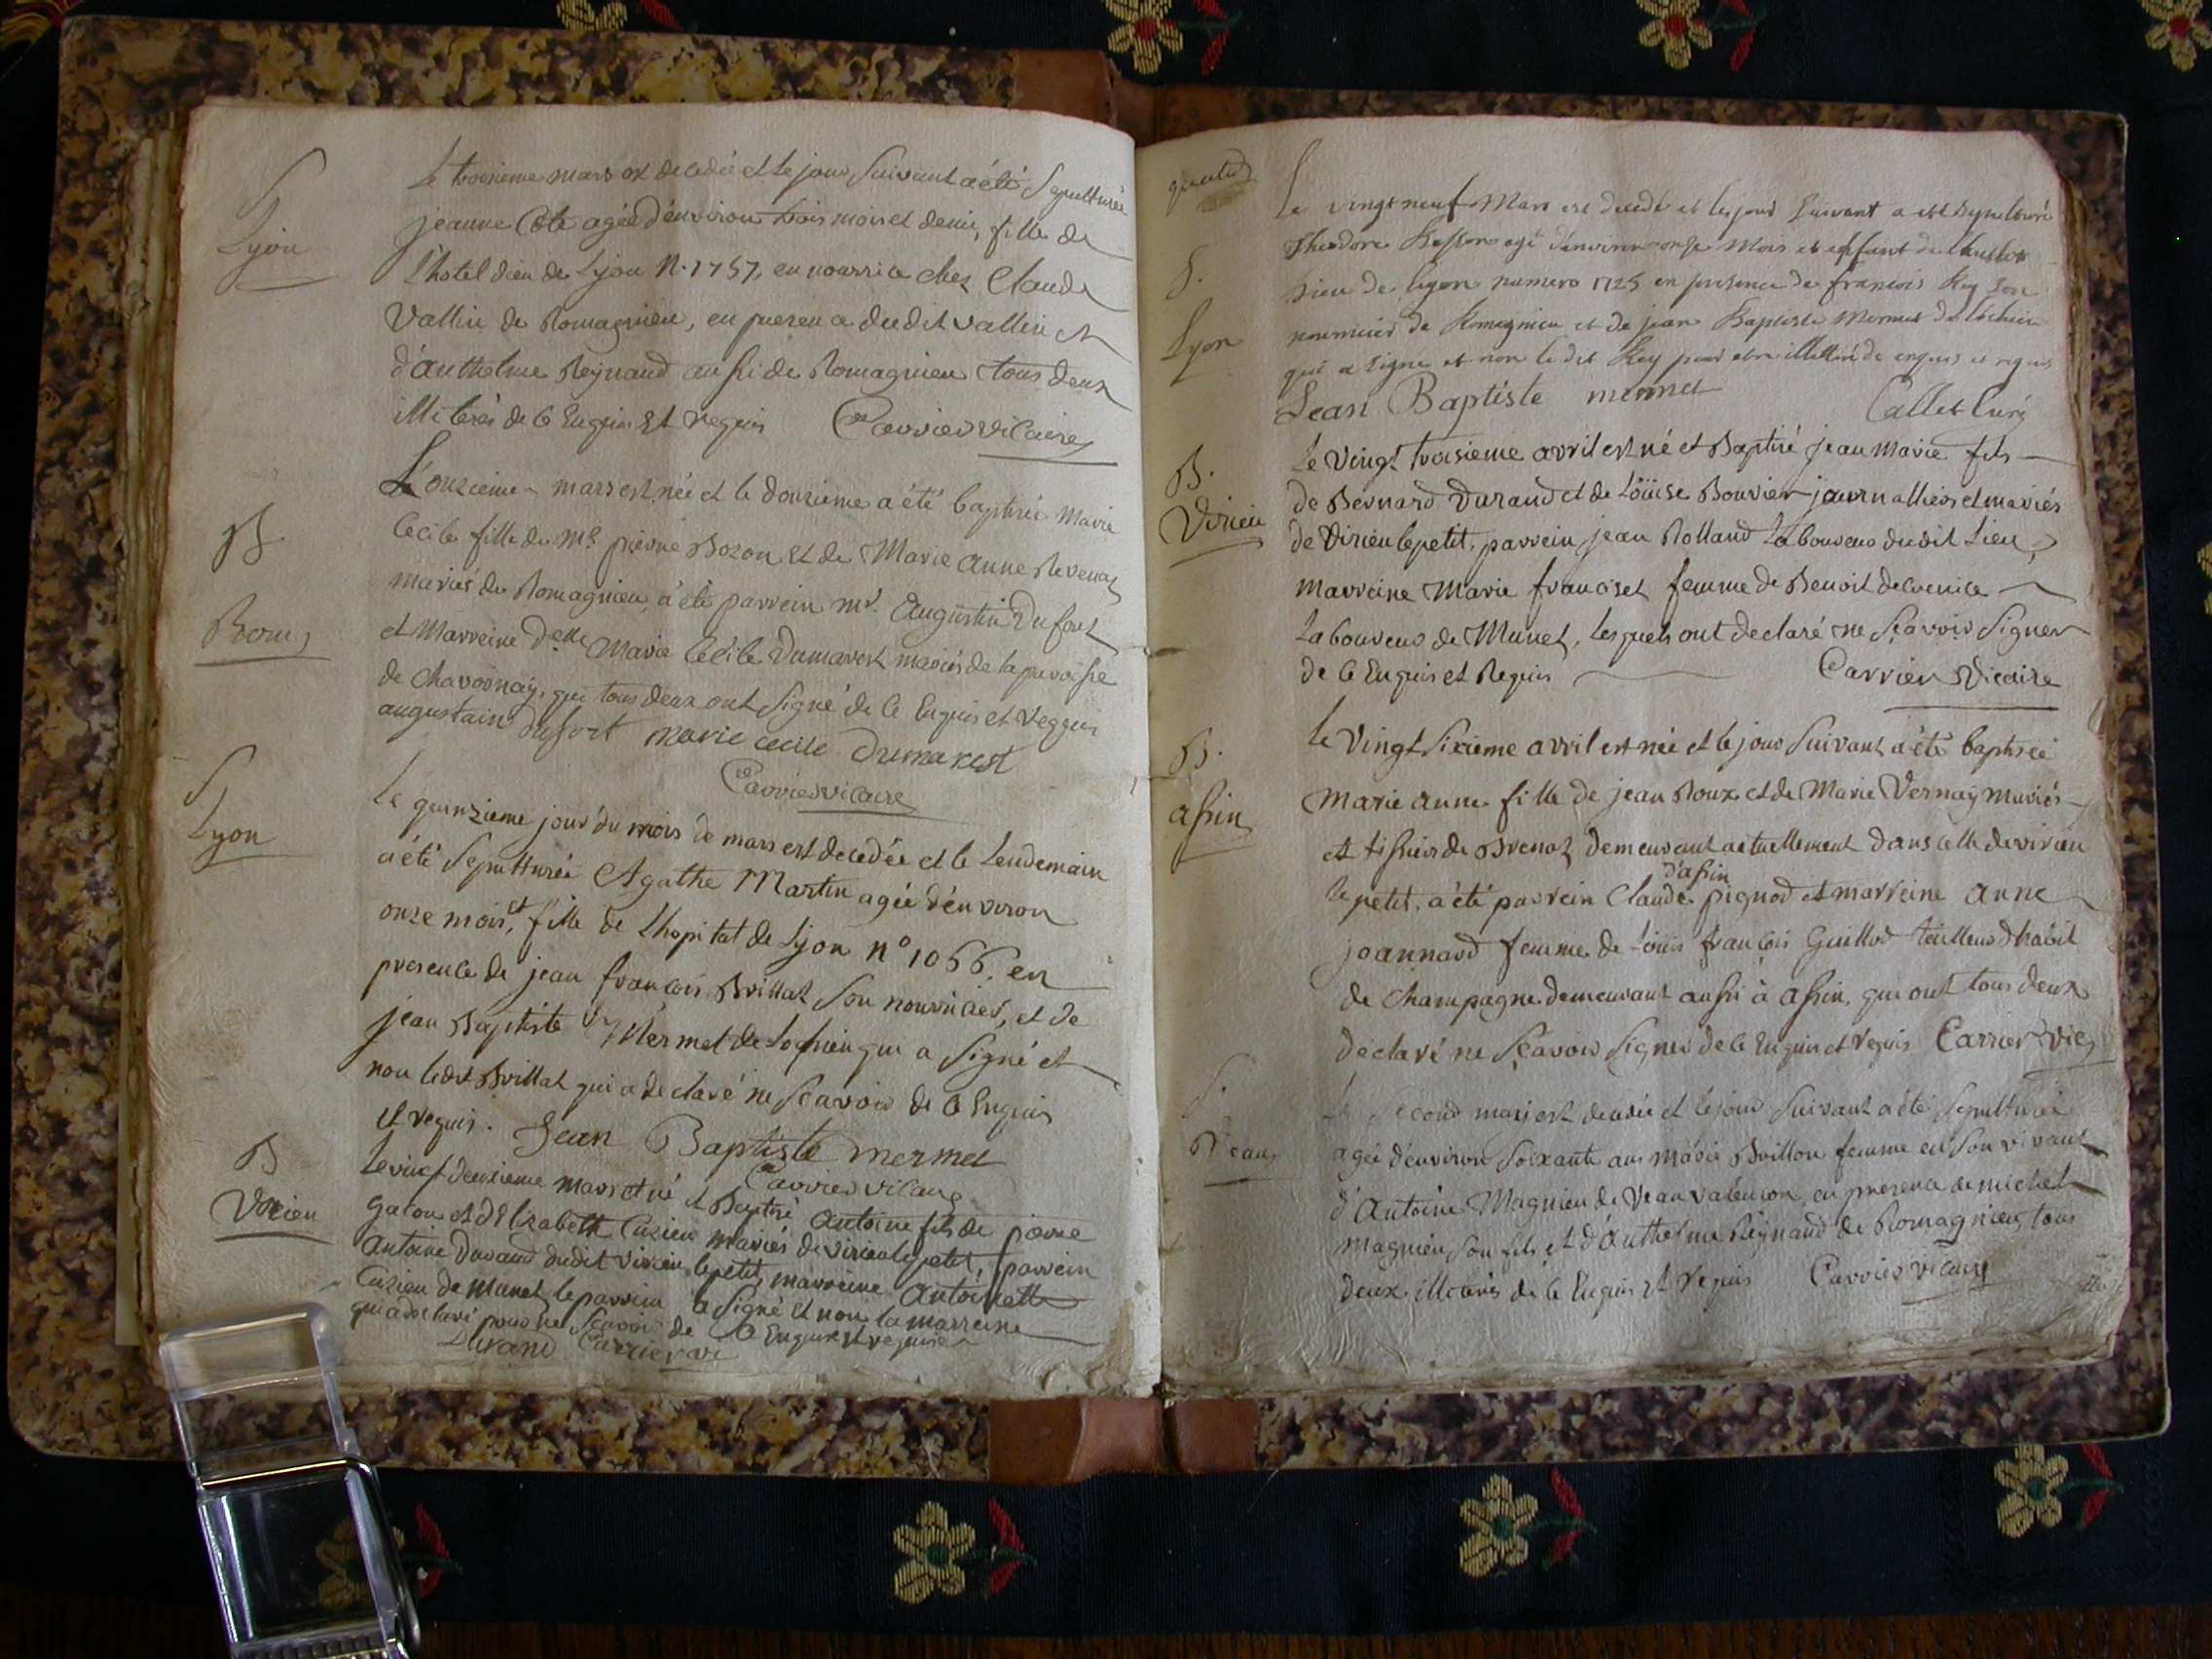 S
Lyon
Le troisieme mars est decedée et le jour suivant a été sepulturée
jeanne Cote agée d'environ trois mois et demie, fille de
L'hotel dieu de Lyon N. 1757, en nourrice chez Claude
Vallin de Romagnieu, en presence dudit vallin et
d'anthelme Reynaud aussi de Romagnieu tous deux
illiterés de ce Enquis Et Requis Carrier vicaire
B
Rom
L'onzieme mars est née et le douzieme a été baptisée Marie
Cecile fille de Mr. pierre Bozon et de Marie Anne Revenaz
mariés de Romagnieu, a été parrein mr. Augustin Dufort
et Marreine Delle Marie Cécile Dumarest mariés de la paroisse
de Chavoonay, qui tous deux ont signé de ce Enquis et Requis
augustain dufort marie cecile dumarest
Carrier vicaire
S
Lyon
Le quinzieme jour du mois de mars est decedée et le Lendemain
a été sepulturée Agathe Martin agée d'environ
onze mois, et fille de L'hopital de Lyon n° 1066. en
presence de jean françois Brillat son nourricier, et de
jean Baptiste Mermet de Lossieu qui a signé et
non ledit Brillat qui a declaré ne sçavoir de ce Enquis
et requis. Jean Baptiste mermet
Carrier vicaire
B
Virieu
Le vingt deuxieme mars est né et Baptisé Antoine fils de pierre
Galon et d'Elizabeth Cuzieu mariés de virieu le petit, parrein
Antoine Durand dudit virieu le petit, marreine Antoinette
Cuzieu de Munet, le parrein a signé et non la marreine
qui a declaré pour ne sçavoir de ce Enquise et requise
Durand Carrier vic
S.
Lyon
Le vingt neuf Mars est decedé et le jour suivant a été sepulturé
Theodore Besson agé d'environ onze mois et enfant de l'hotel
dieu de lyon numero 1725 en presence de francois Rey son
nourricier de Romagnieu et de jean Baptiste Mermet de
qui a signe et non le dit Rey pour etre illettéré de enquis et requis
Jean Baptiste mermet Callet Curé
B.
Virieu
Le vingt troisieme avril est né et Baptisé jean marie fils
de Bernard Durand et de Loüise Bouvier journalliers et mariés
de Virieu le petit, parrein jean Rolland Laboureur dudit Lieu,
marreine Marie franciset femme de Benoit delavenice
Laboureur de Munet, lesquels ont declaré ne sçavoir signer
de ce Enquis et Requis Carrier Vicaire
B.
assin
Le vingt sixieme avril est née et le jour suivant a été baptisée
Marie anne fille de jean Roux et de Marie Vernay mariés
et tissiers de Brenaz demeurant actuellement dans celle de virieu
d'assin
le petit, a été parrein Claude pignod et marreine anne
joannard femme de Loüis françois Guillod tailleur d'habit
de Champagne demeurant aussi à assin, qui ont tous deux
declaré ne sçavoir signer de ce Enquis et requis Carrier Vic
S.
Veau
Le second mai est decedée et le jour suivant a été sepulturée
agée d'environ soixante ans marie Brillon femme en son vivant
d'Antoine Magnieu de Veau valencon, en presence de michel
magnieu son fils et d'Anthelme Reynaud de Romagnieu, tous
deux illiterés de ce Enquis Et requis Carrier vicaire